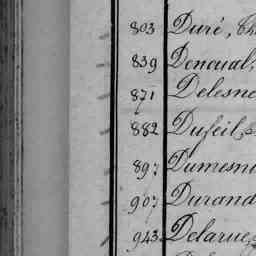 803 Duré,
839 Denoual,
871 Delesne
882 Dufeil,
897 Dumesni
907 Durand
943 Delarue,